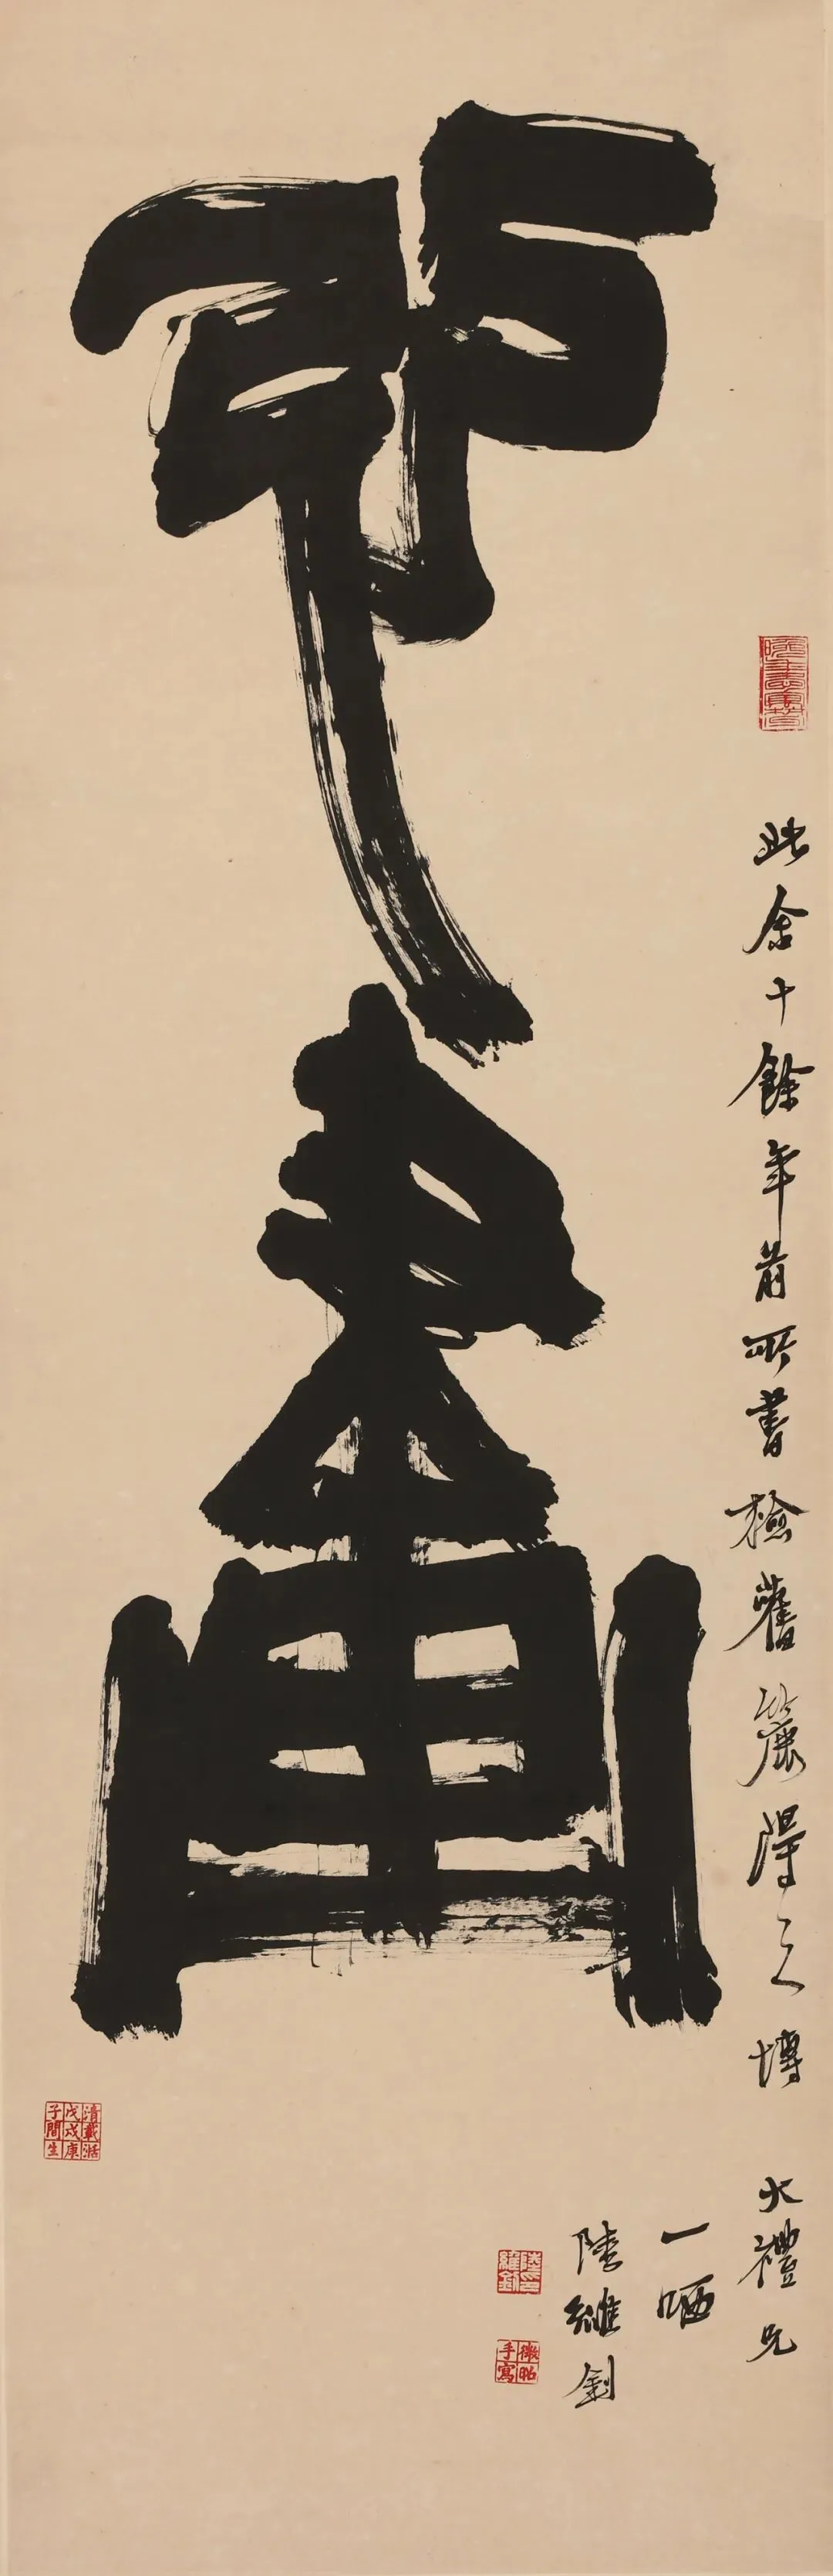 畫
此余十餘年前所書檢舊簏得之博大禮兄
一哂
陸維釗
陸印維釗
微昭手寫
清載湉戊戌庚子間生